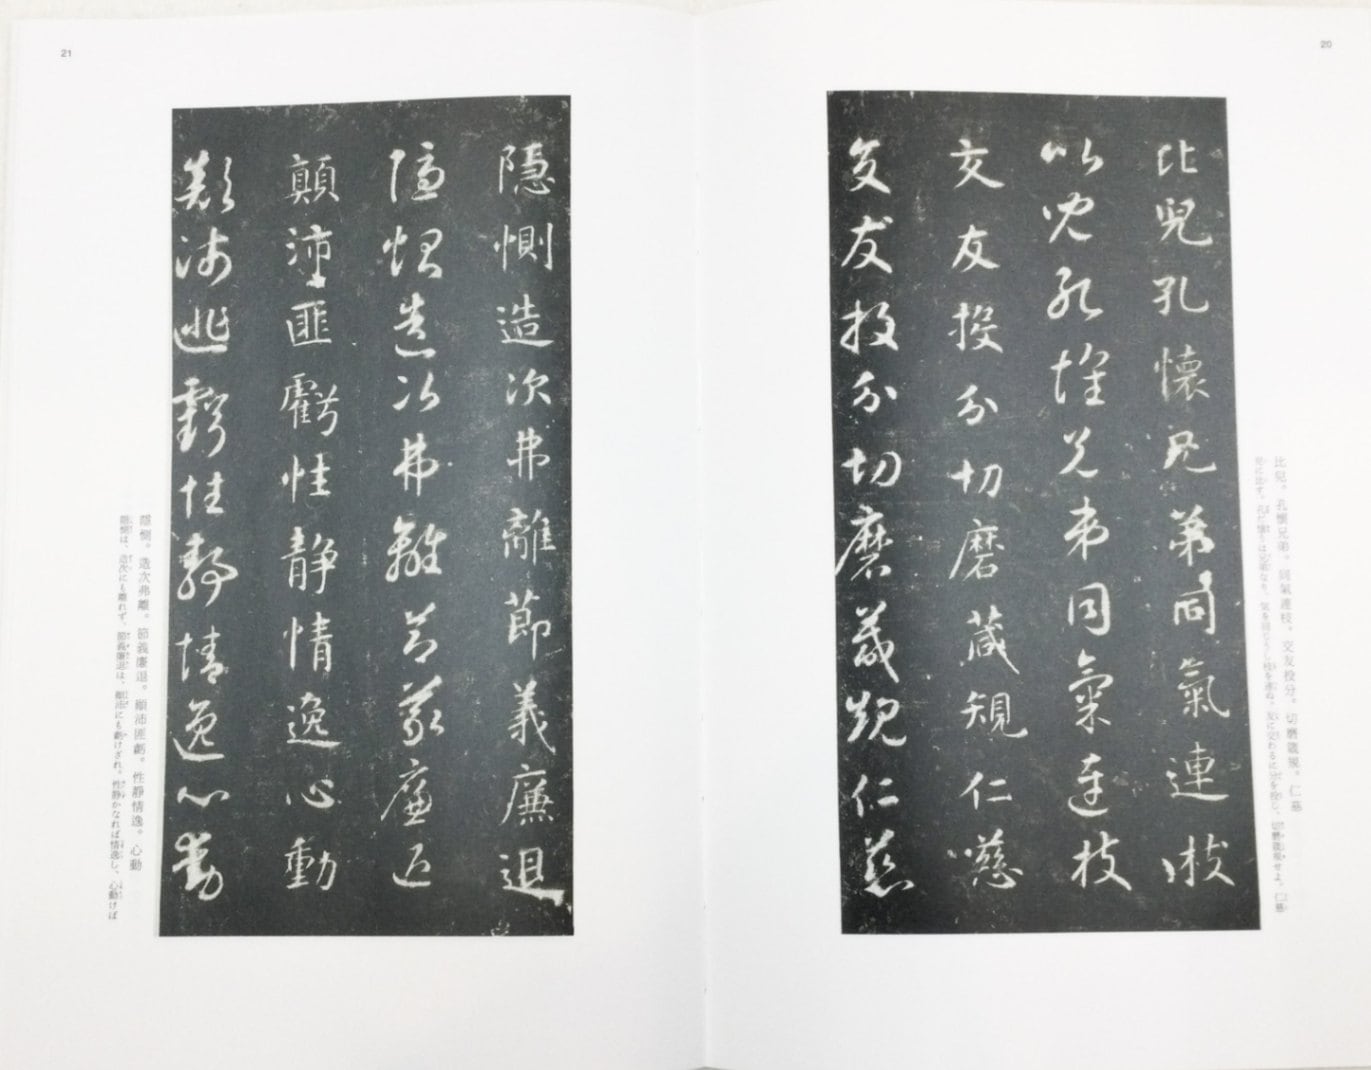 20
比兒。孔懷兄弟。同氣連枝。交友投分。切磨箴規。仁慈
兒に比す。孔だ懐うは兄弟なり、気を同じうし枝を連ぬ。友に交わるに分を投じ、切磨箴規せよ。仁慈
比兒孔懷兄弟同氣連枝
比兒孔懷兄弟同氣連枝
交友投分切磨箴規仁慈
交友投分切磨箴規仁慈
21
隱惻造次弗離節義廉退
隱惻造次弗離節義廉退
顛沛匪虧性静情逸心動
顛沛匪虧性静情逸心動
隱惻。造次弗離。節義廉退。顚沛匪虧。性靜情逸。心動
隠惻は、造次にも離れず、節義廉退は、顚沛にも虧けざれ。性静かなれば情逸し、心動けば